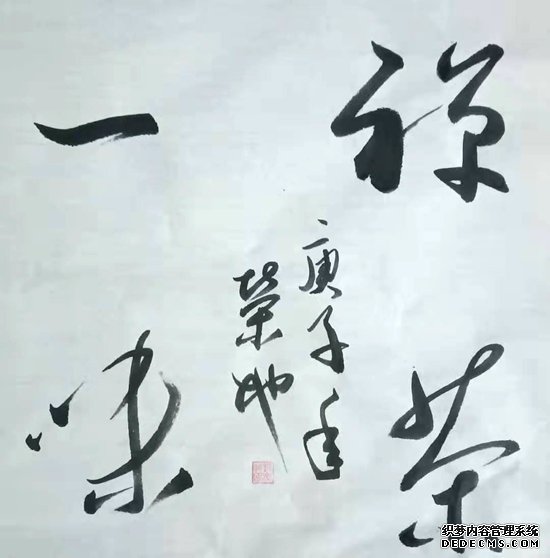 禅茶
庚子年
一味
织梦内容管理系统
DEDECMS.COM